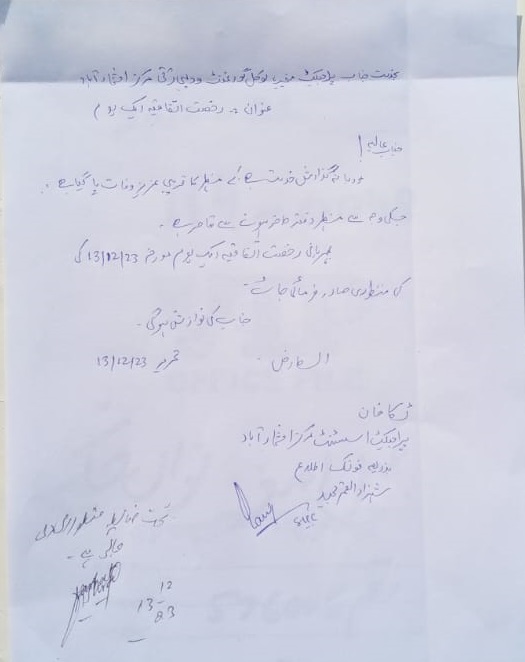 بخدمت جناب پراجیکٹ منیجر لوکل گورنمنٹ و دیہی ترقی مرکز افتخار آباد
عنوان :۔ رخصت اتفاقیہ ایک یوم
جناب عالیہ!
گذارش خدمت ہے کہ مظہر کا قریبی عزیز وفات پا گیا ہے ۔
جسکی وجہ سے مظہر دفتر حاضر ہونے سے قاصر ہے ۔
مہربانی رخصت اتفاقیہ ایک یوم مورخہ 13/12/23 کی
کی منظوری صادر فرمائی جائے ۔
جناب کی نوازش ہو گی ۔
العارض تحریر 13/12/23
خان
پراجیکٹ اسسٹنٹ مرکز افتخار آباد
بذریعہ فونک اطلاع
شہزاد
تحت ضابطہ منظور
جاتی ہے ۔
13 12
23